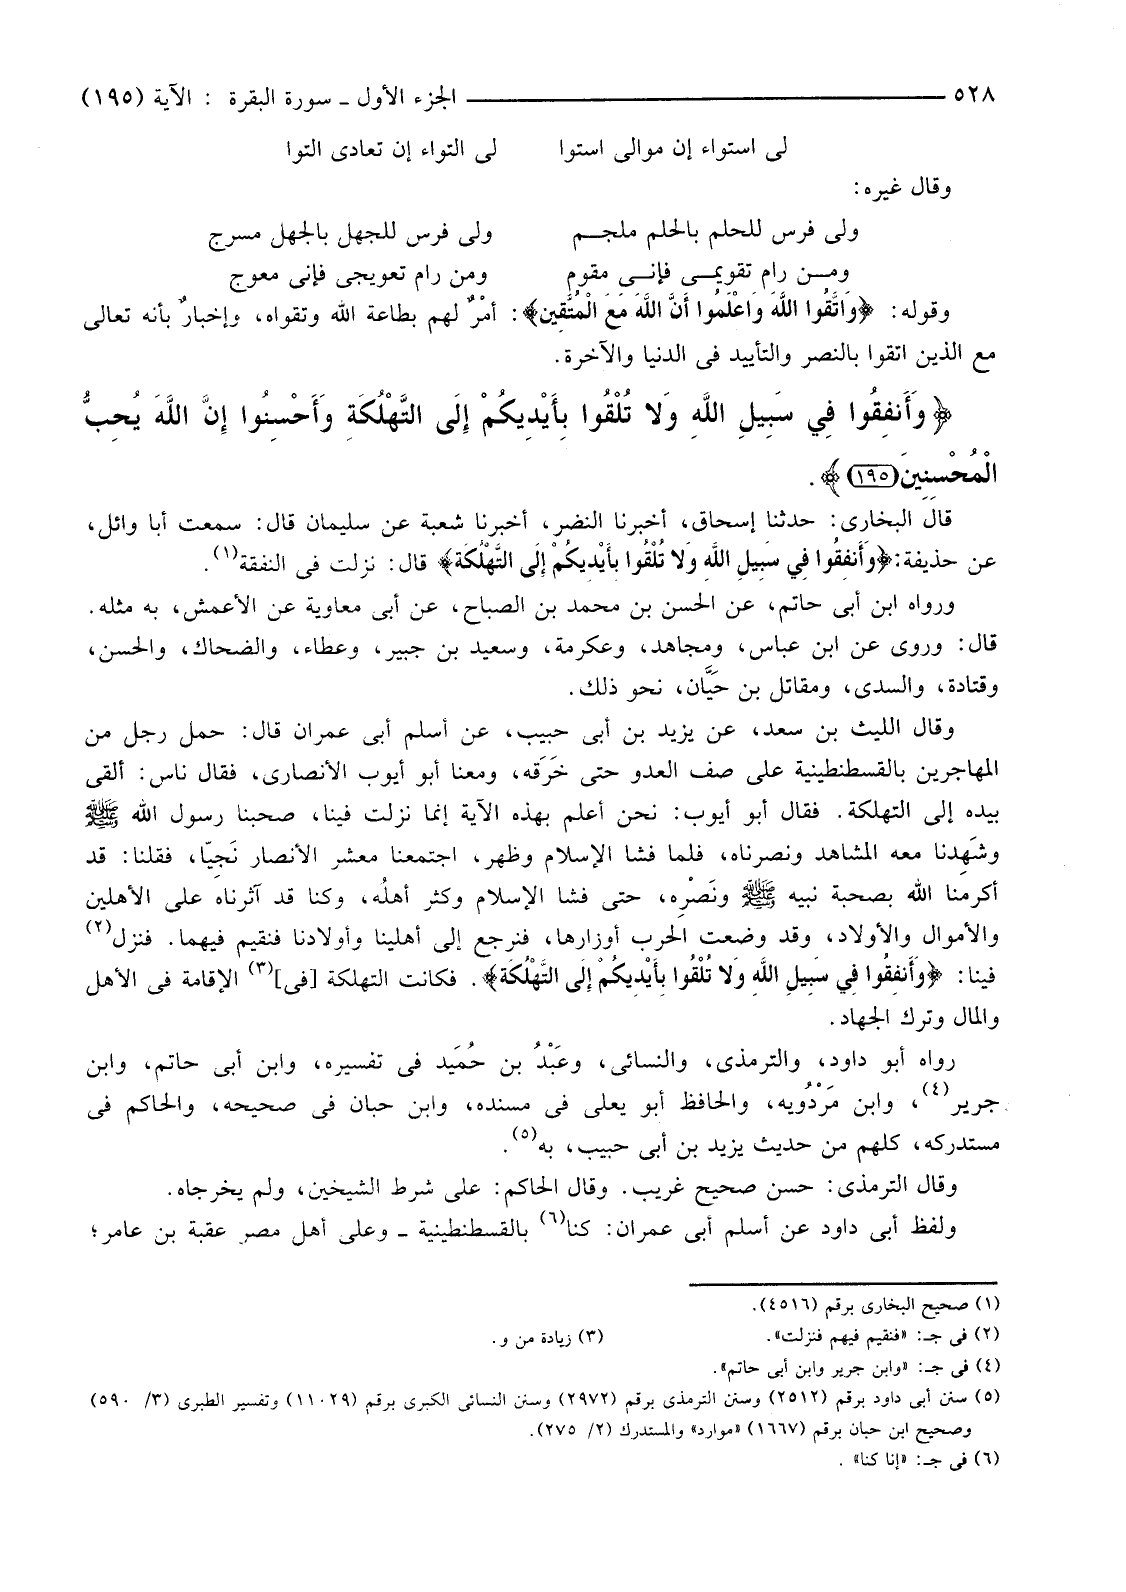 ٥٢٨ ـــــ الجزء الأول ـ سورة البقرة : الآية (١٩٥)
لى استواء إن موالى استوا لى التواء إن تعادى التوا
وقال غيره:
ولى فرس للحلم بالحلم ملجـــم ولى فرس للجهل بالجهل مسرج
ومـــن رام تقويمـــى فإنـــى مقوم ومن رام تعويجى فإنى معوج
وقوله: ﴿وَاتَّقُوا اللَّهَ وَاعْلَمُوا أَنَّ اللَّهَ مَعَ الْمُتَّقِين﴾: أمْرٌ لهم بطاعة الله وتقواه، وإخبارٌ بأنه تعالى
مع الذين اتقوا بالنصر والتأييد فى الدنيا والآخرة.
﴿وَأَنفِقُوا فِي سَبِيلِ اللَّهِ وَلا تُلْقُوا بِأَيْدِيكُمْ إِلَى التَّهْلُكَةِ وَأَحْسِنُوا إِنَّ اللَّهَ يُحِبُّ
الْمُحْسِنِينَ (١٩٥)﴾ .
قال البخارى: حدثنا إسحاق، أخبرنا النضر، أخبرنا شعبة عن سليمان قال: سمعت أبا وائل،
عن حذيفة: ﴿وَأَنفِقُوا فِي سَبِيلِ اللَّهِ وَلا تُلْقُوا بِأَيْدِيكُمْ إِلَى التَّهْلُكَة﴾ قال: نزلت فى النفقة(١).
ورواه ابن أبى حاتم، عن الحسن بن محمد بن الصباح، عن أبى معاوية عن الأعمش، به مثله.
قال: وروى عن ابن عباس، ومجاهد، وعكرمة، وسعيد بن جبير، وعطاء، والضحاك، والحسن،
وقتادة، والسدى، ومقاتل بن حَيَّان، نحو ذلك.
وقال الليث بن سعد، عن يزيد بن أبى حبيب، عن أسلم أبى عمران قال: حمل رجل من
المهاجرين بالقسطنطينية على صف العدو حتى خَرَقه، ومعنا أبو أيوب الأنصارى، فقال ناس: ألقى
بيده إلى التهلكة. فقال أبو أيوب: نحن أعلم بهذه الآية إنما نزلت فينا، صحبنا رسول الله ﷺ
وشَهِدنا معه المشاهد ونصرناه، فلما فشا الإسلام وظهر، اجتمعنا معشر الأنصار نَجِيّا، فقلنا: قد
أكرمنا الله بصحبة نبيه ﷺ ونَصْرِه، حتى فشا الإسلام وكثر أهلُه، وكنا قد آثرناه على الأهلين
والأموال والأولاد، وقد وضعت الحرب أوزارها، فنرجع إلى أهلينا وأولادنا فنقيم فيهما. فنزل(٢)
فينا: ﴿وَأَنفِقُوا فِي سَبِيلِ اللَّهِ وَلا تُلْقُوا بِأَيْدِيكُمْ إِلَى التَّهْلُكَة﴾ . فكانت التهلكة [فى](٣) الإقامة فى الأهل
والمال وترك الجهاد.
رواه أبو داود، والترمذى، والنسائى، وعَبْدُ بن حُمَيد فى تفسيره، وابن أبى حاتم، وابن
جرير(٤)، وابن مَرْدُويه، والحافظ أبو يعلى فى مسنده، وابن حبان فى صحيحه، والحاكم فى
مستدركه، كلهم من حديث يزيد بن أبى حبيب، به(٥).
وقال الترمذى: حسن صحيح غريب. وقال الحاكم: على شرط الشيخين، ولم يخرجاه.
ولفظ أبى داود عن أسلم أبى عمران: كنا(٦) بالقسطنطينية ـ وعلى أهل مصر عقبة بن عامر؛
(١) صحيح البخارى برقم (٤٥١٦).
(٢) فى جـ: «فنقيم فيهم فنزلت». (٣) زيادة من و.
(٤) فى جـ: «وابن جرير وابن أبى حاتم».
(٥) سنن أبى داود برقم (٢٥١٢) وسنن الترمذى برقم (٢٩٧٢) وسنن النسائى الكبرى برقم (١١٠٢٩) وتفسير الطبرى (٣/ ٥٩٠)
وصحيح ابن حبان برقم (١٦٦٧) «موارد» والمستدرك (٢/ ٢٧٥).
(٦) فى جـ: «إنا كنا» .